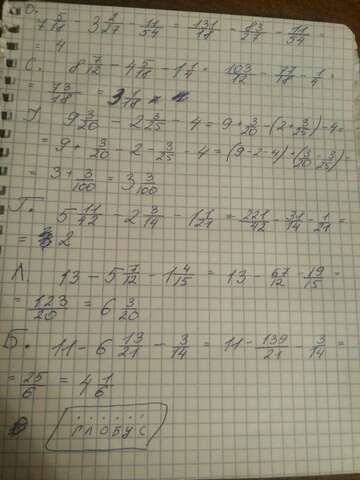 О.
7 5/18 - 3 2/27 - 11/54 = 131/18 - 83/27 - 11/54 =
= 4
С. 8 7/12 - 4 5/18 - 1 1/4 = 103/12 - 77/18 - 1/4 =
= 73/18 = 3 1/18
9 3/20 - 2 3/25 - 4 = 9 + 3/20 - (2 + 3/25) - 4 =
= 9 + 3/20 - 2 - 3/25 - 4 = (9 - 2 - 4) + (3/20 - 3/25) =
= 3 + 3/100 = 3 3/100
Г. 5 11/42 - 2 3/14 - 1 1/21 = 221/42 - 31/14 - 1/21 =
= 2
Л. 13 - 5 7/12 - 1 4/15 = 13 - 67/12 - 19/15 =
= 123/20 = 6 3/20
Б. 11 - 6 13/21 - 3/14 = 11 - 139/21 - 3/14 =
= 25/6 = 4 1/6
ГЛОБУС